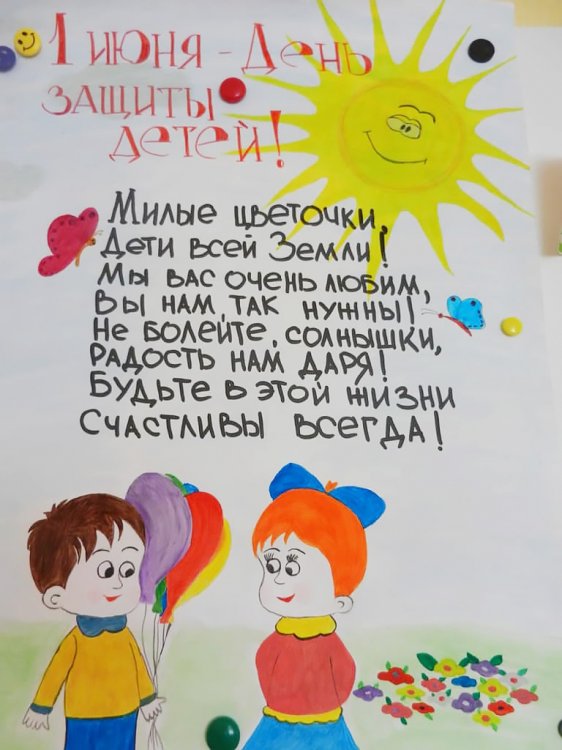 1 июня - День
защиты
детей!
Милые цветочки,
Дети всей Земли!
Мы вас очень любим,
Вы нам так нужны!
Не болейте, солнышки,
Радость нам даря!
Будьте в этой жизни
Счастливы всегда!